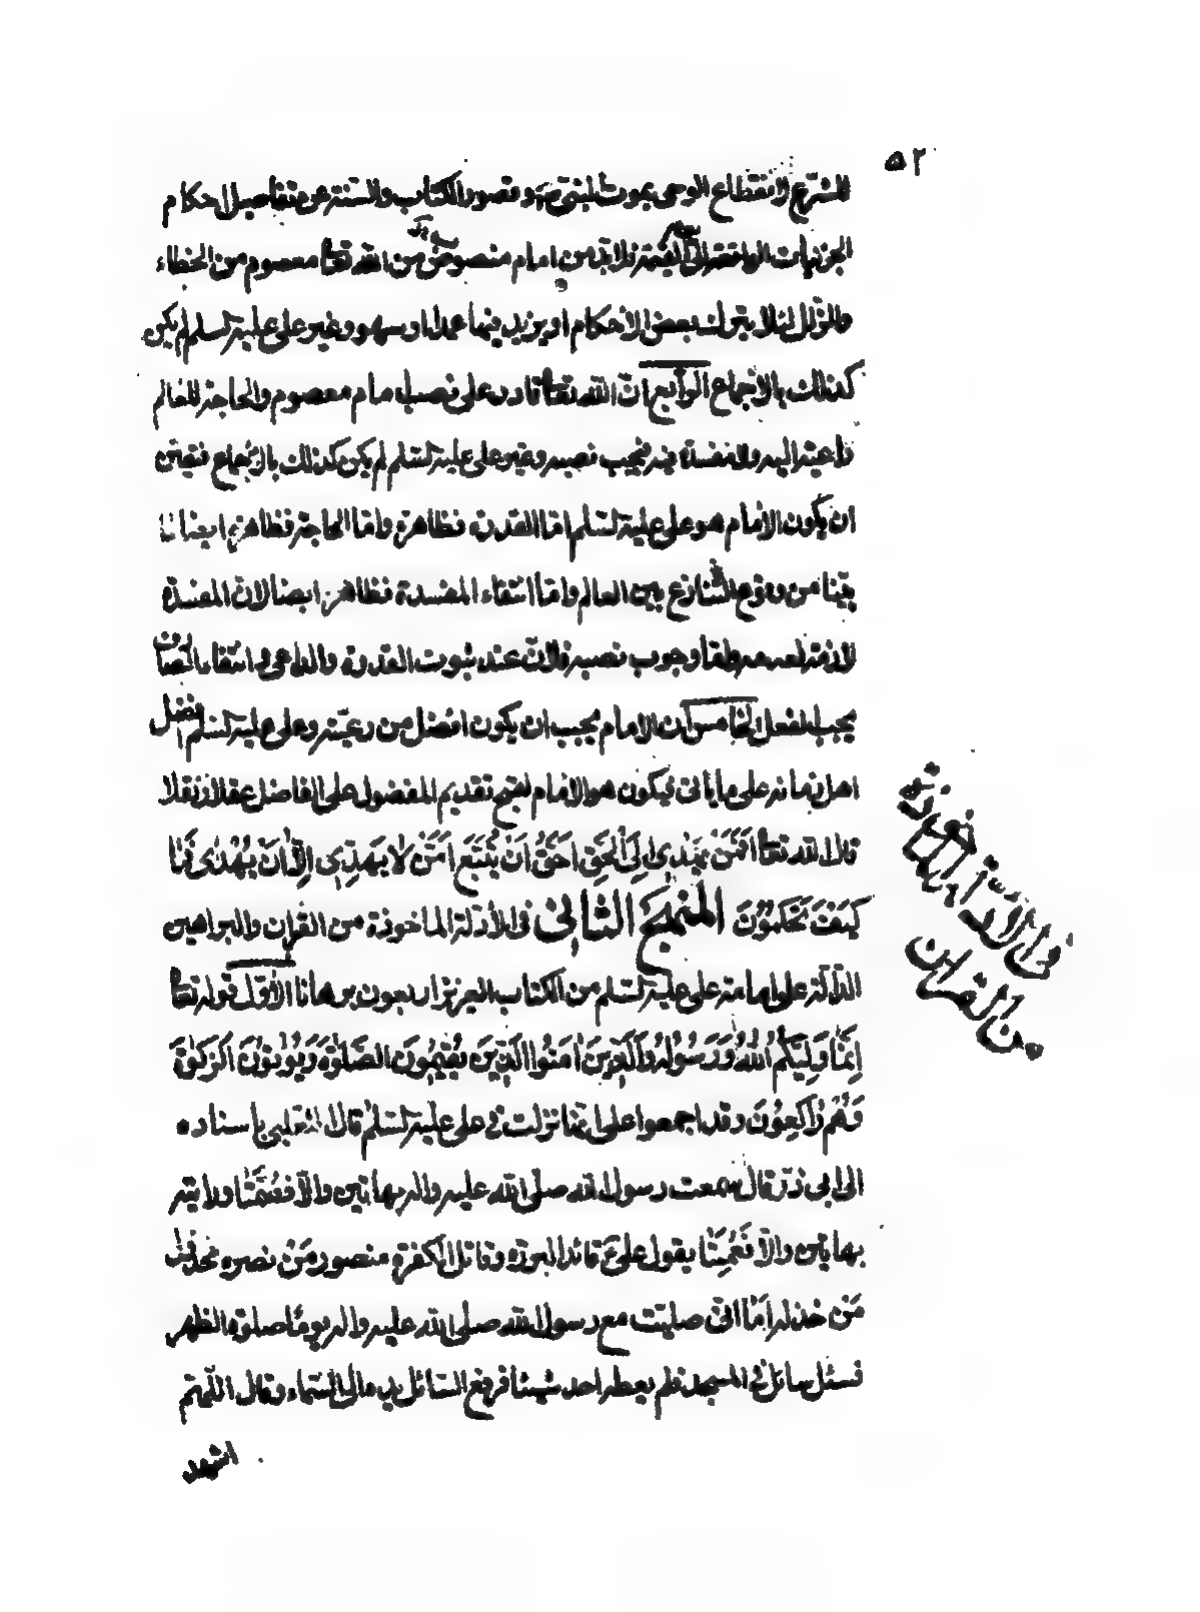 ٥٢
للشرع لانقطاع الوحى بموت النبى ص و قصور الكتاب والسنة عن تفاصيل احكام
الجزئيات الواقعة الى يوم القيمة فلا بد من امام منصوص من الله تعا معصوم من الخطاء
والزلل لئلا يترك بعض الاحكام او يزيد فيها عمدا او سهوا وغير على عليه السلم لم يكن
كذلك بالاجماع الرابع ان الله تعا قادر على نصب امام معصوم والحاجة للعالم
داعية اليه ولا مفسدة فيه فيجب نصبه وغير على عليه السلم لم يكن كذلك بالاجماع فتعين
ان يكون الامام هو على عليه السلم اما القدرة فظاهرة واما الحاجة فظاهرة ايضا لما
بينا من وقوع التنازع بين العالم واما انتفاء المفسدة فظاهر ايضا لان المفسدة
لازمة لعدمه واما وجوب نصبه فلان عند ثبوت القدرة والداعى و انتفاء الصارف
يجب الفعل الخامس ان الامام يجب ان يكون افضل من رعيته وعلى عليه السلم افضل
اهل زمانه على ما ياتى فيكون هو الامام لقبح تقديم المفضول على الفاضل عقلا ونقلا
قال الله تعا اَفَمَنْ يَهْدِى اِلَى الْحَقِ اَحَقُّ اَنْ يُتَّبَعَ اَمَّنْ لا يَهِدِّى اِلّا اَنْ يُهْدٰى فَمَا
لَكُمْ كَيْفَ تَحْكُمُونَ المنهج الثانى فى الادلة الماخوذة من القران والبراهين
الدالة على امامة على عليه السلم من الكتاب العزيز اربعون برهانا الاول قوله تعا
اِنَّمَا وَلِيُّكُمُ اللهُ وَرَسُولُهُ وَالَّذِينَ امَنُوا الَّذِينَ يُقِيمُونَ الصَّلوٰةَ وَيُؤتُونَ الزَكوٰةَ
وَهُمْ رٰاكِعُونَ وقد اجمعوا على انها نزلت فى على عليه السلم قال الثعلبى باسناده
الى ابى ذر قال سمعت رسول الله صلى الله عليه واله بهاتين والا فصمّتا ورايته
بهاتين والا فعميتا يقول على ع قائد البررة وقاتل الكفرة منصور من نصره مخذول
من خذله اما انى صليت مع رسول الله صلى الله عليه واله يوما صلوة الظهر
فسئل سائل فى المسجد فلم يعطه احد شيئا فرفع السائل يده الى السماء وقال اللهم
اشهد
فى الادلة الماخوذة
من القران